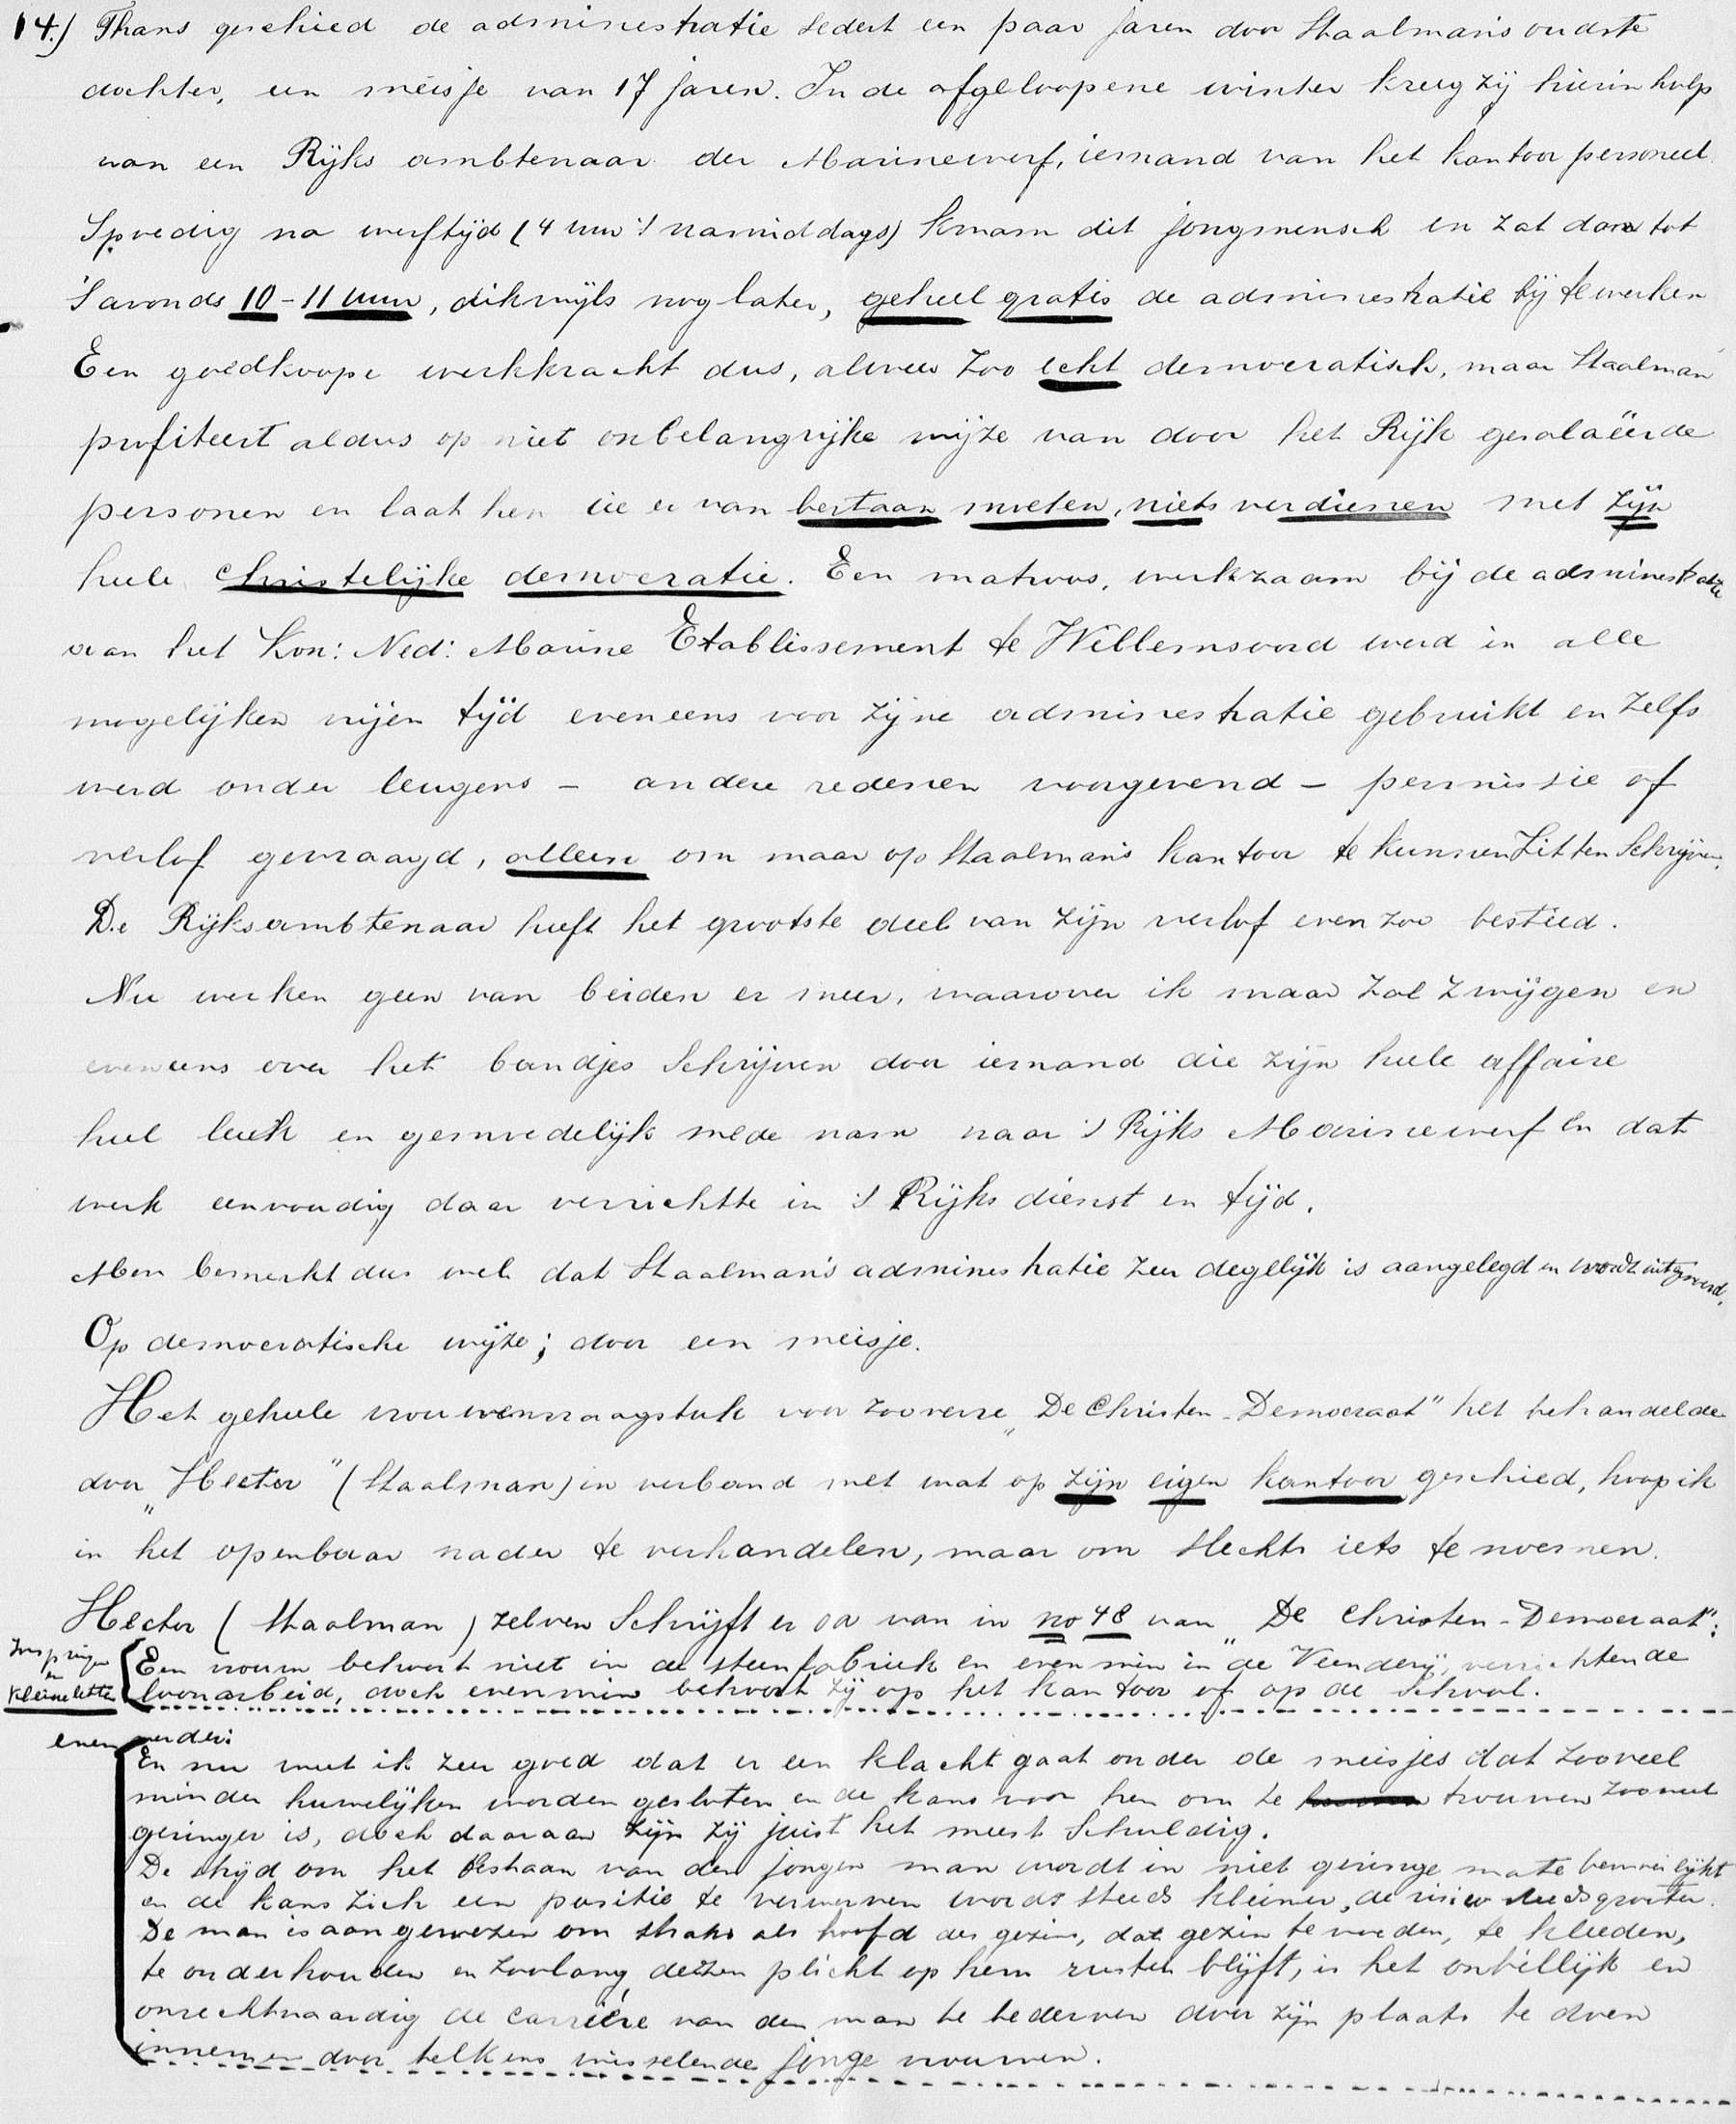 14.) Thans geschied de adminestratie sedert een paar jaren door Staalman's oudste
dochter, een meisje van 17 jaren. In de afgeloopene winter kreeg zij hierin hulp
van een Rijks ambtenaar der Marinewerf, iemand van het kantoor personeel.
Spoedig na werftijd (4 uur 's namiddags) kwam dit jongmensch en zat dan tot
's avonds 10 - 11 uur, dikwijls nog later, geheel gratis de adminestratie bij te werken
Een goedkoope werkkracht dus, alweer zoo echt democratisch, maar Staalman
profiteert aldus op niet onbelangrijke wijze van door het Rijk gesalaëerde
personen en laat hen die er van bestaan moeten, niets verdienen met zijn
heele christelijke democratie. Een matroos, werkzaam bij de adminestratie
van het Kon: Ned: Marine Etablissement te Willemsoord werd in alle
mogelijken vrijen tijd eveneens voor zijne adminestratie gebruikt en zelfs
werd onder leugens - andere redenen voorgevend - permissie of
verlof gevraagd, alleen om maar op Staalman's kantoor te kunnen zitten schrijven.
De Rijksambtenaar heeft het grootste deel van zijn verlof even zoo besteed.
Nu werken geen van beiden er meer, waarover ik maar zal zwijgen en
eveneens over het bandjes schrijven door iemand die zijn heele affaire
heel leuk en gemoedelijk mede nam naar 's Rijks Marinewerf en dat
werk eenvoudig daar verrichtte in 's Rijks dienst en tijd.
Men bemerkt dus wel dat Staalman's adminestratie zeer degelijk is aangelegd en wordt uitgevoerd.
Op democratische wijze; door een meisje.
Het geheele vrouwenvraagstuk voor zooverre „De Christen-Democraat" het behandelde
door „Hector" (Staalman) in verband met wat op zijn eigen kantoor geschied, hoop ik
in het openbaar nader te verhandelen, maar om slechts iets te noemen.
Hector (Staalman) zelven schrijft er oa van in no 48 van „De Christen-Democraat":
Inspringen
en
kleine letter
Een vrouw behoort niet in de steenfabriek en evenmin in de Veenderij, verrichtende
loonarbeid, doch evenmin behoort zij op het kantoor of op de school.
en verder:
En nu weet ik zeer goed dat er een klacht gaat onder de meisjes dat zooveel
minder huwelijken worden gesloten en de kans voor hen om te trouwen zooveel
geringer is, doch daaraan zijn zij juist het meest schuldig.
De strijd om het bestaan van den jongen man wordt in niet geringe mate bemoeilijkt
en de kans zich een positie te verwerven wordt steeds kleiner, de risico steeds grooter.
De man is aangewezen om straks als hoofd des gezins, dat gezin te voeden, te kleeden,
te onderhouden en zoolang dezen plicht op hem rusten blijft, is het onbillijk en
onrechtvaardig de carrière van den man te bederven door zijn plaats te doen
innemen door telkens wisselende jonge vrouwen.